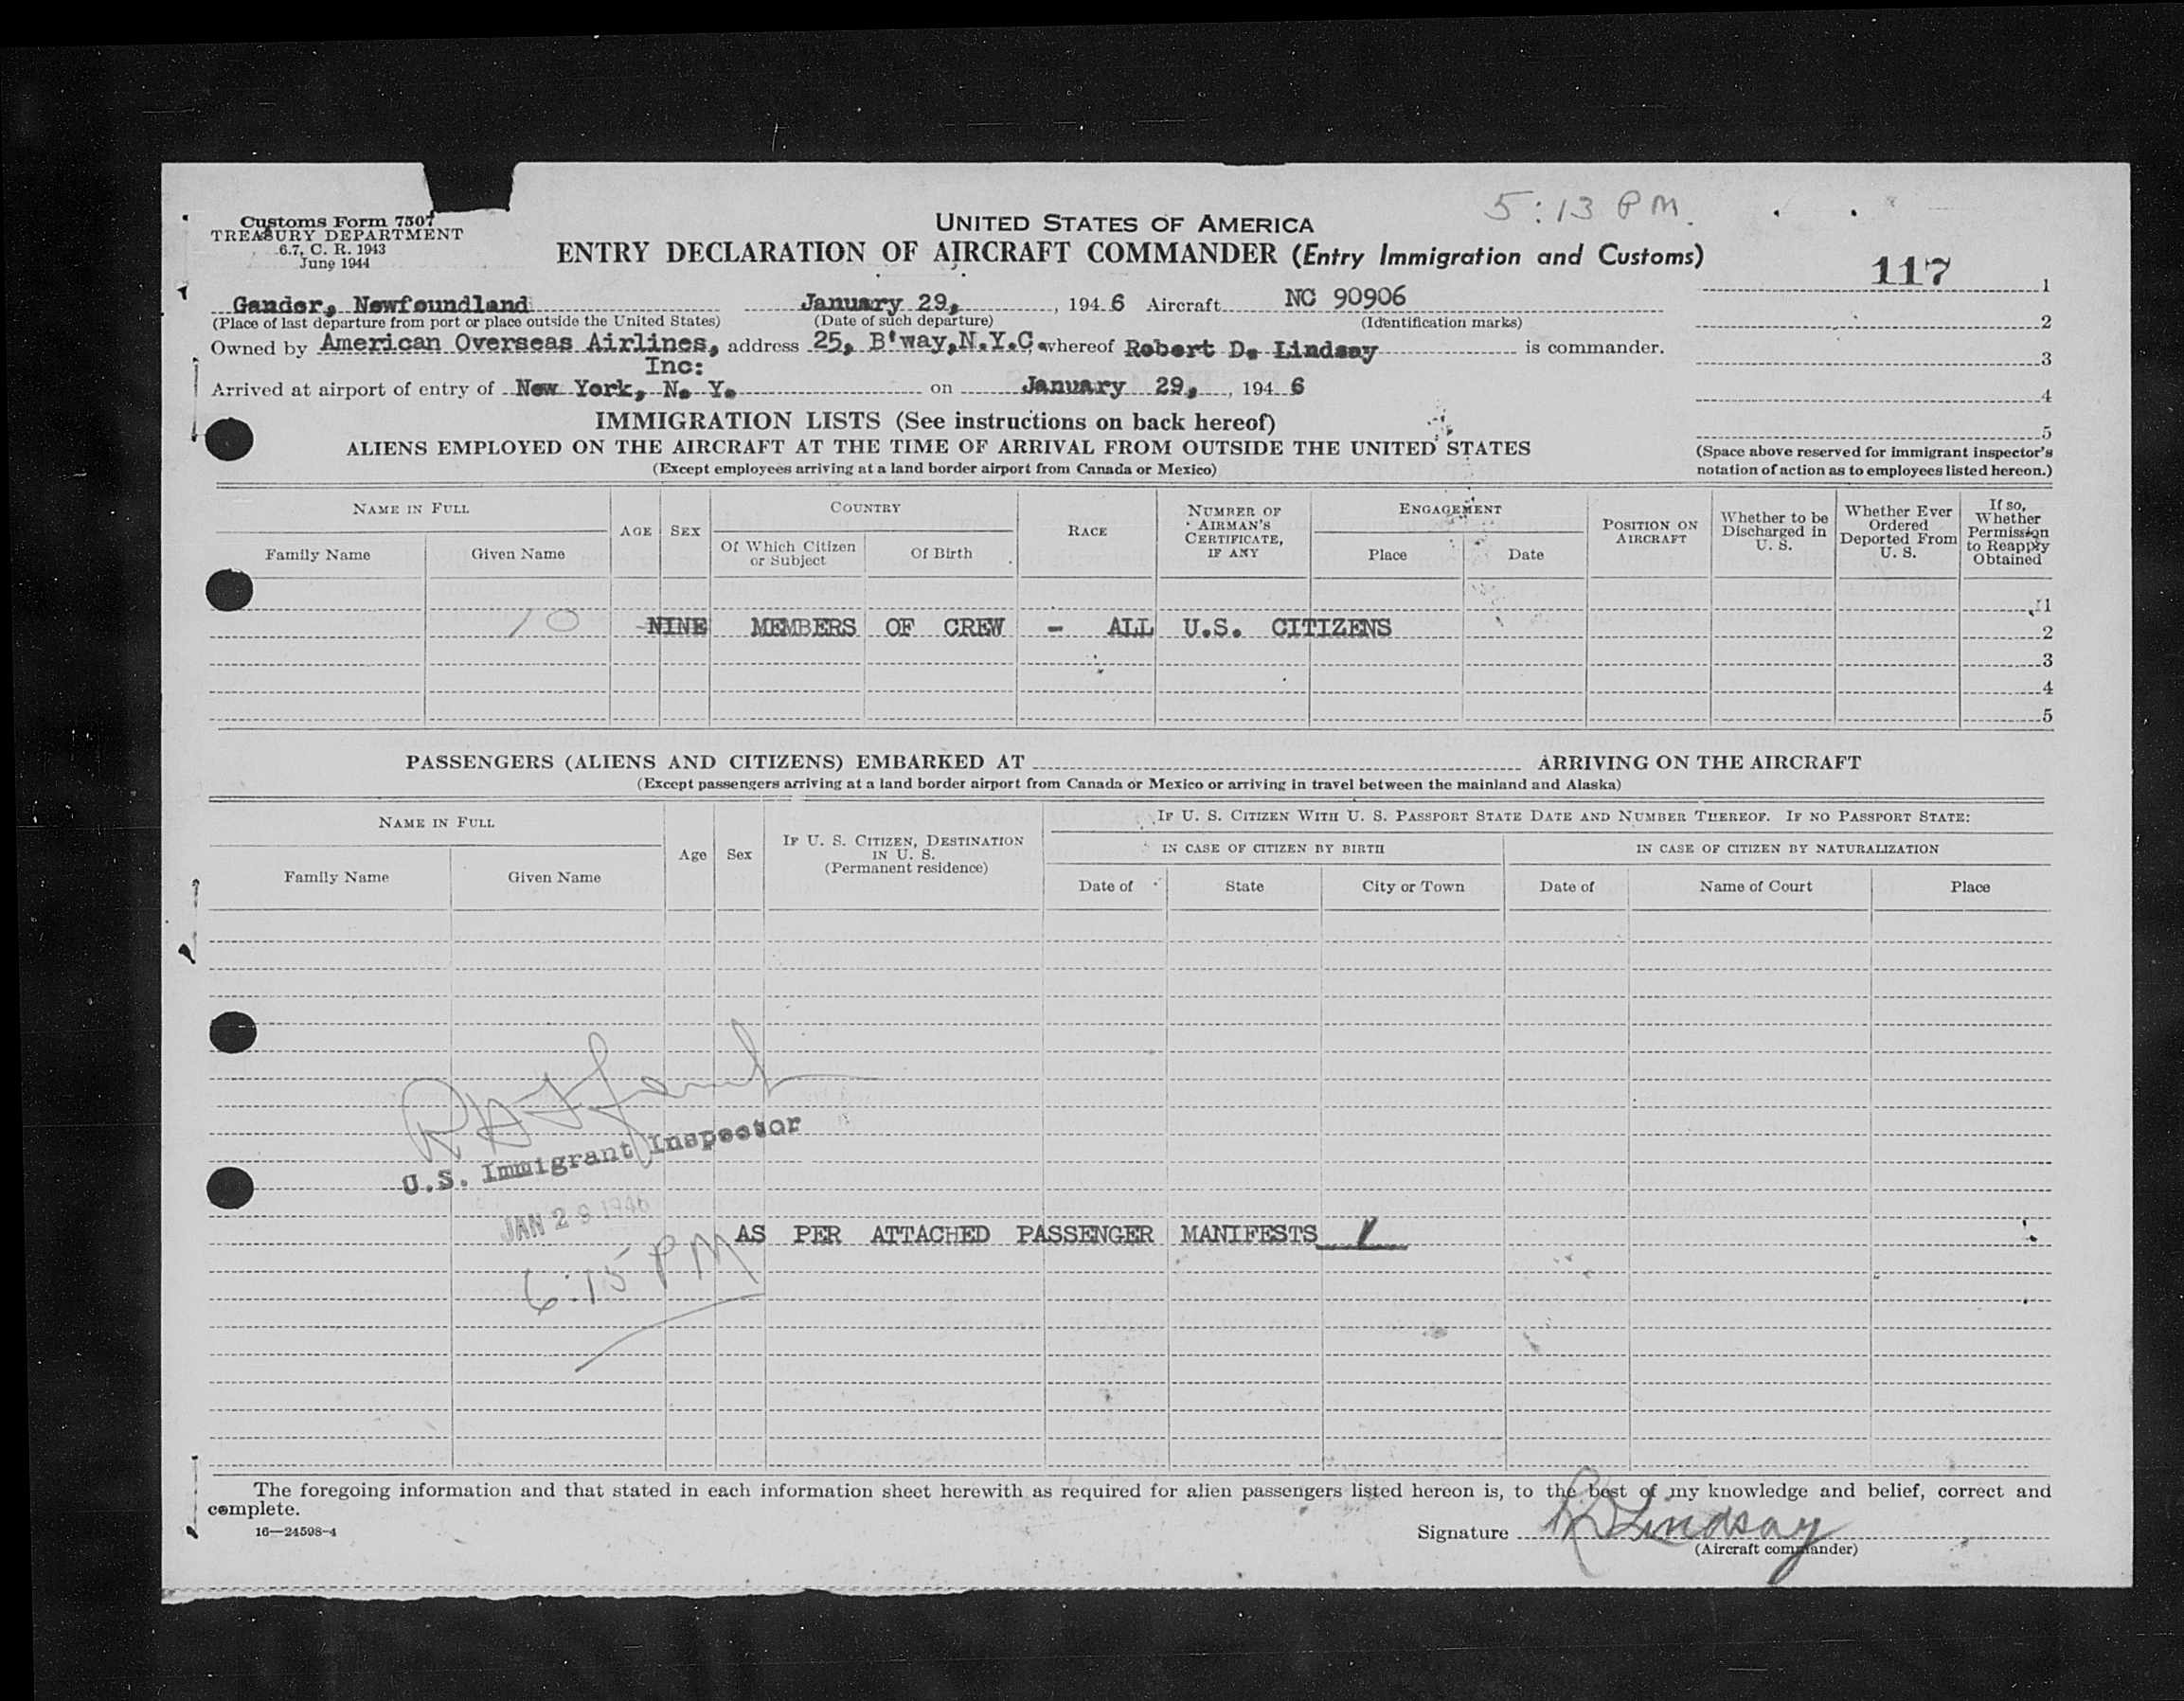 5:13 PM.
Customs Form 7507
TREASURY DEPARTMENT
6.7, C. R. 1943
June 1944
UNITED STATES OF AMERICA
ENTRY DECLARATION OF AIRCRAFT COMMANDER (Entry Immigration and Customs)
117 1
Gander, Newfoundland January 29, , 194 6 Aircraft NC 90906
(Place of last departure from port or place outside the United States) (Date of such departure) (Identification marks) 2
Owned by American Overseas Airlines, address 25, B'way,N.Y.C. whereof Robert D. Lindsay is commander.
Inc: 3
Arrived at airport of entry of New York, N. Y. on January 29, , 194 6 4
IMMIGRATION LISTS (See instructions on back hereof) 5
ALIENS EMPLOYED ON THE AIRCRAFT AT THE TIME OF ARRIVAL FROM OUTSIDE THE UNITED STATES
(Except employees arriving at a land border airport from Canada or Mexico)
(Space above reserved for immigrant inspector's
notation of action as to employees listed hereon.)
NAME IN FULL AGE SEX COUNTRY RACE NUMBER OF AIRMAN'S CERTIFICATE, IF ANY ENGAGEMENT POSITION ON AIRCRAFT Whether to be Discharged in U. S. Whether Ever Ordered Deported From U. S. If so, Whether Permission to Reapply Obtained
Family Name Given Name Of Which Citizen or Subject Of Birth Place Date
1
10 NINE MEMBERS OF CREW - ALL U.S. CITIZENS 2
3
4
5
PASSENGERS (ALIENS AND CITIZENS) EMBARKED AT ARRIVING ON THE AIRCRAFT
(Except passengers arriving at a land border airport from Canada or Mexico or arriving in travel between the mainland and Alaska)
NAME IN FULL Age Sex IF U. S. CITIZEN, DESTINATION IN U. S. (Permanent residence) IF U. S. CITIZEN WITH U. S. PASSPORT STATE DATE AND NUMBER THEREOF. IF NO PASSPORT STATE:
IN CASE OF CITIZEN BY BIRTH IN CASE OF CITIZEN BY NATURALIZATION
Family Name Given Name Date of State City or Town Date of Name of Court Place
U.S. Immigrant Inspector
JAN 29 1946
AS PER ATTACHED PASSENGER MANIFESTS
6:15 PM
The foregoing information and that stated in each information sheet herewith as required for alien passengers listed hereon is, to the best of my knowledge and belief, correct and
complete.
16—24598-4
Signature RD Lindsay
(Aircraft commander)